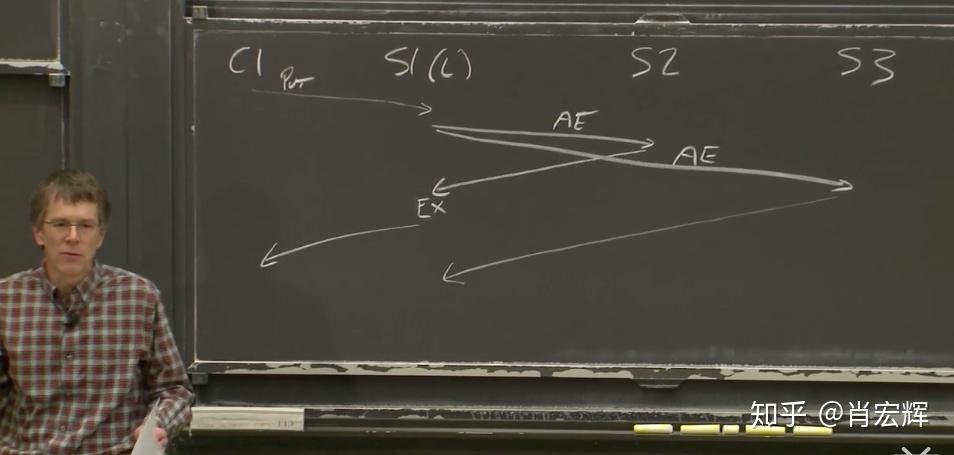 C1 S1(L) S2 S3
Put
AE
AE
EX
知乎 @肖宏辉